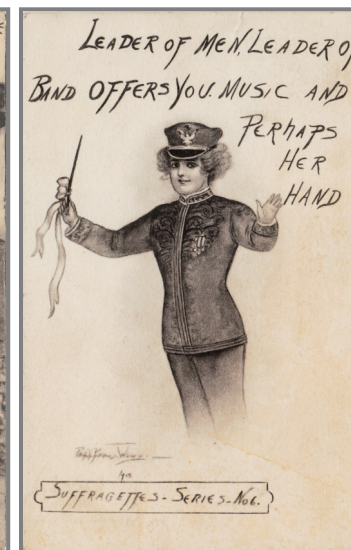 LEADER OF MEN, LEADER O
BAND OFFERS YOU. MUSIC AND
PERHAPS
HER
HAND
SUFFRAGETTES - SERIES - No 6.